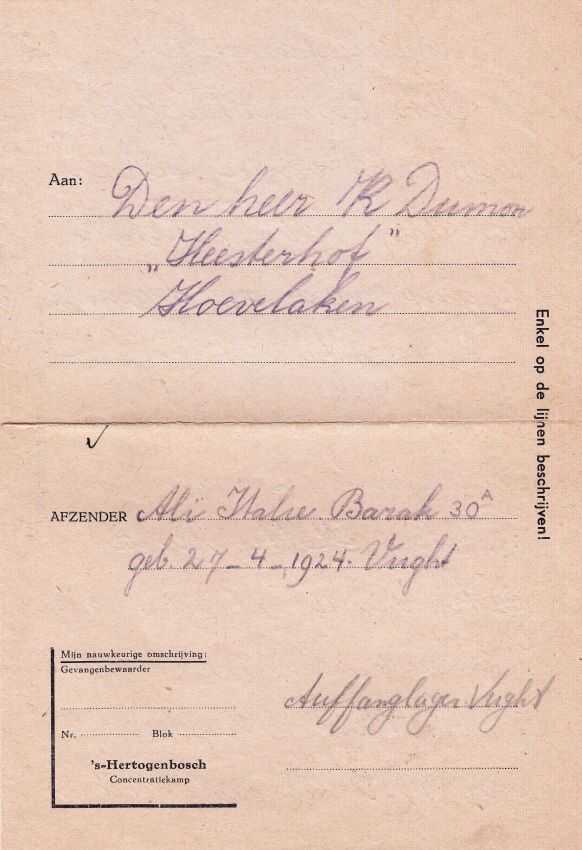 Aan: Den heer K Dumon
„Heesterhof"
Hoevelaken
Enkel op de lijnen beschrijven!
AFZENDER Ali Barak 30A
geb. 27-4-1924. Vught
Mijn nauwkeurige omschrijving:
Gevangenbewaarder
Nr. Blok
's-Hertogenbosch
Concentratiekamp
Auffanglager Vught